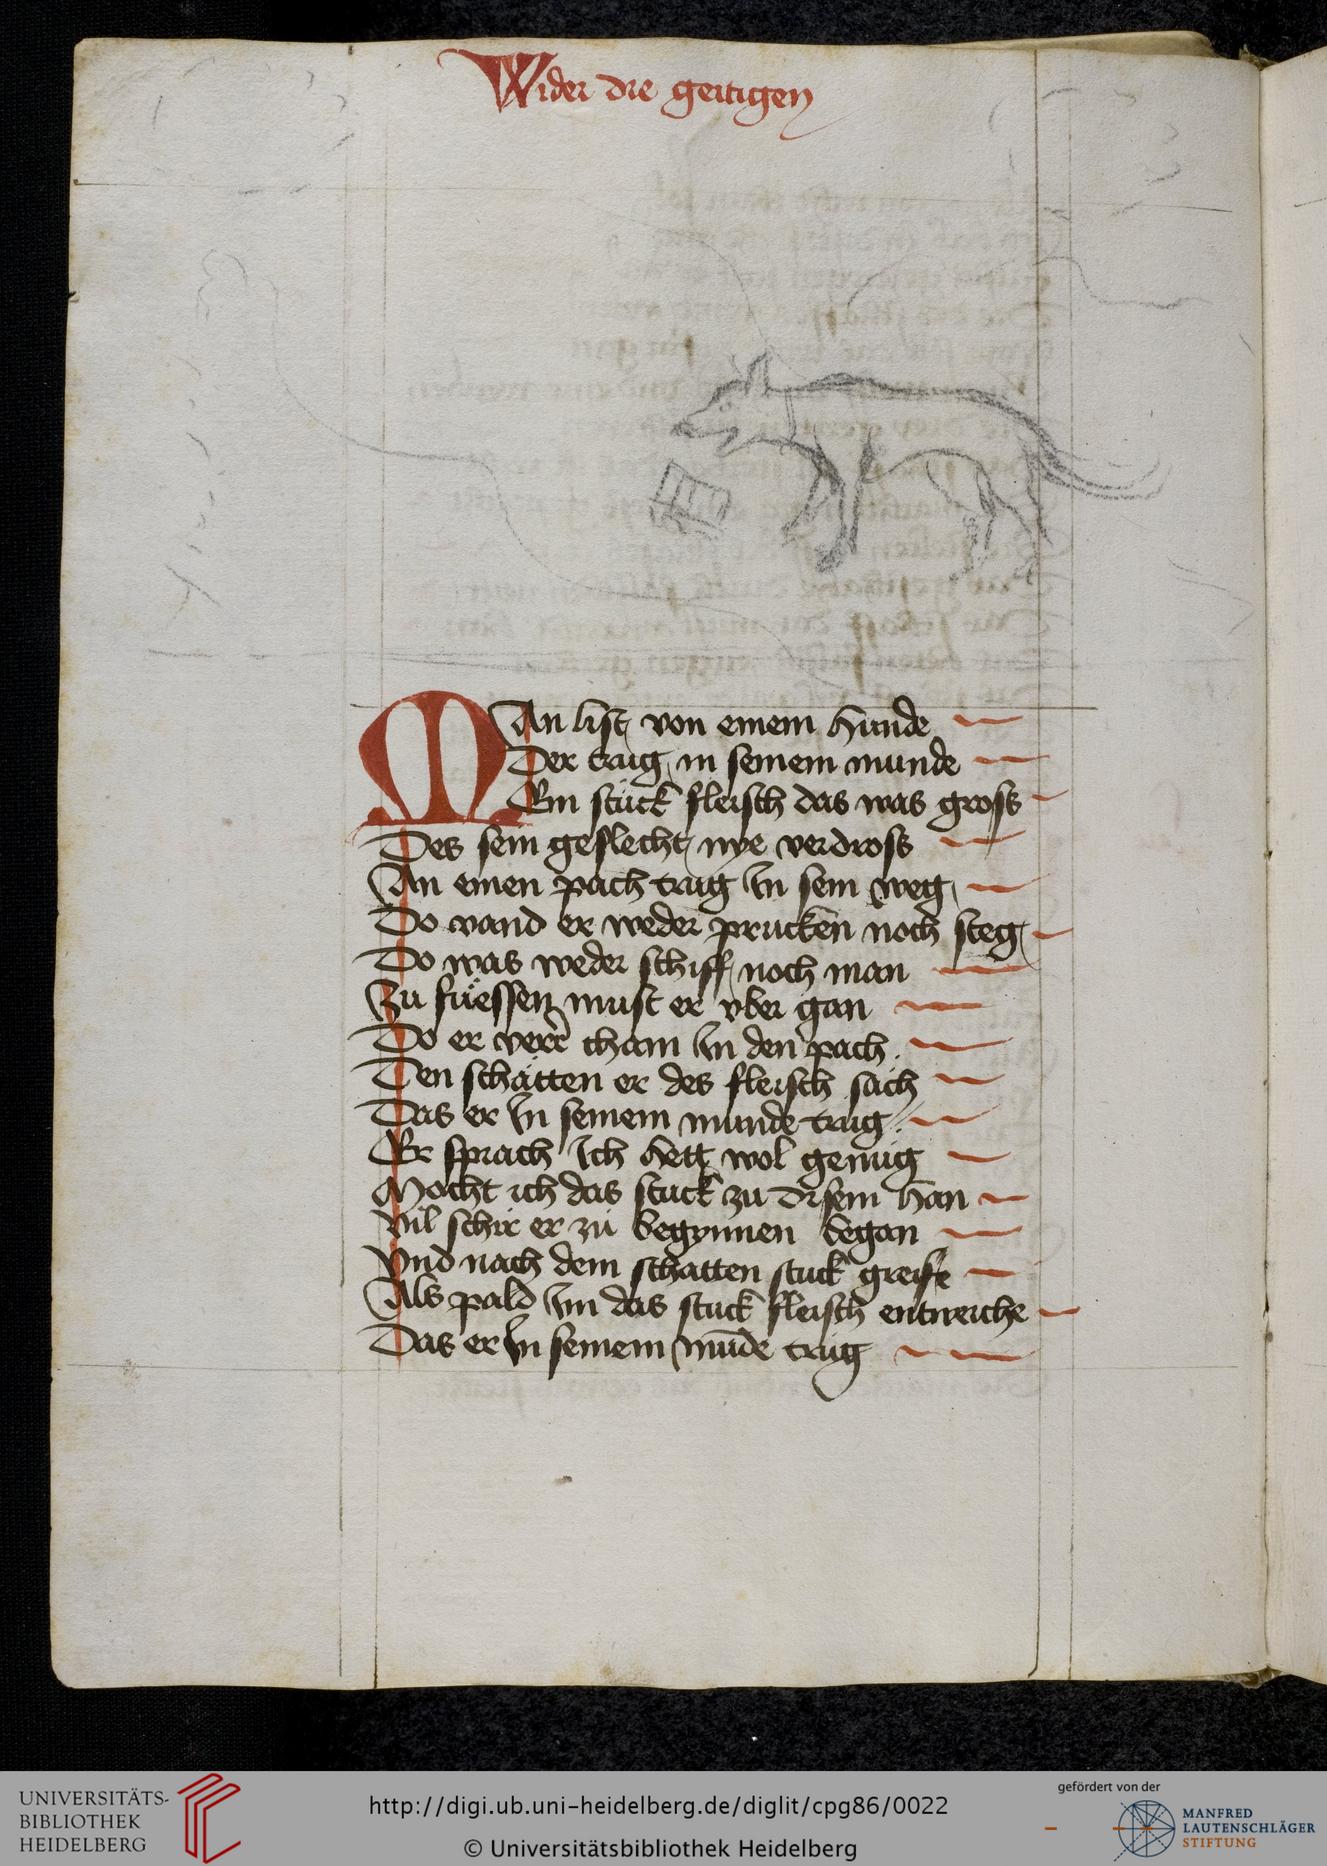 Wider die geitigen
MAn list von einem hunde
Der trug in seinem munde
Ein stück fleisch das was gross
Des sein geslecht nye verdross
An einen pach trug In sein weg
Do vand er weder prucken noch steg
Do was weder schiff noch man
Zu füessen must er vber gan
Do er verr cham In den pach
Den schatten er des fleisch sach
Das er In seinem munde trug
Er sprach Ich hett wol genug
Mocht ich das stuck zu disem han
Vil schir er zu begynnen began
Vnd nach dem schatten stuck greiffe
Als pald Im das stuck fleisch entweiche
Das er In seinem mūde trug
UNIVERSITÄTS-
BIBLIOTHEK
HEIDELBERG
http://digi.ub.uni-heidelberg.de/diglit/cpg86/0022
© Universitätsbibliothek Heidelberg
gefördert von der
MANFRED
LAUTENSCHLÄGER
STIFTUNG